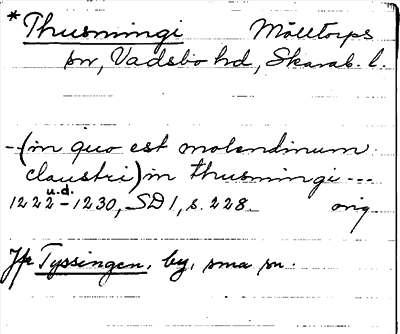 *Thusmingi Mölltorps
sn, Vadsbo hd, Skarab. l.
-(in quo est molendinum
claustri) in thusmingi ---
u.d.
1222-1230, SD 1, s. 228. orig.
Jfr Tyssingen, by, sma sn.